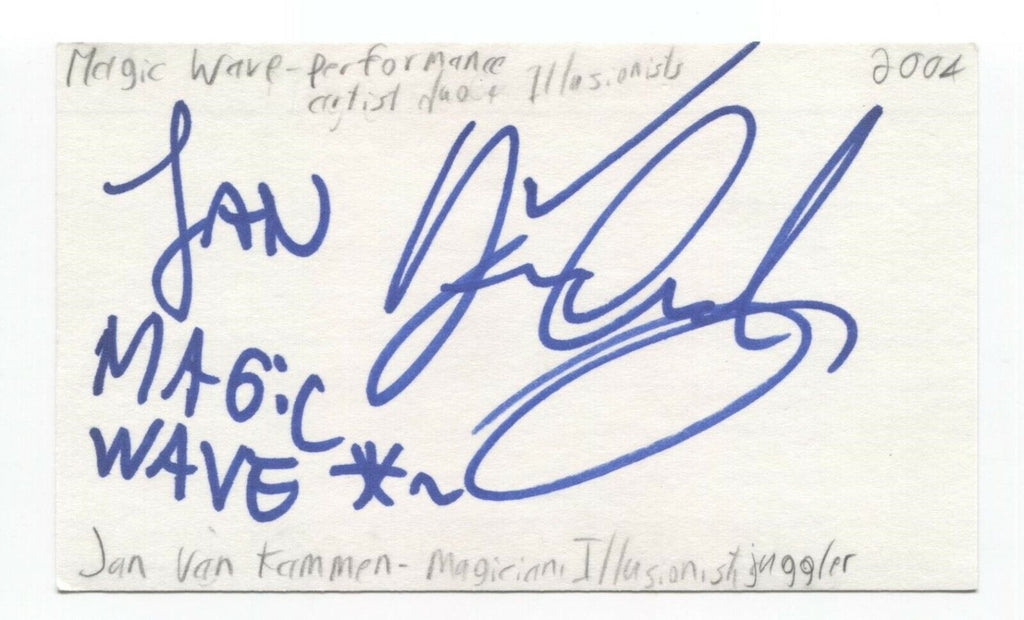 Magic Wave - performance Illusionists 2004
artist duo +
JAN
MAGiC
WAVE *~
Jan Van Kammen - Magician, Illusionist, juggler